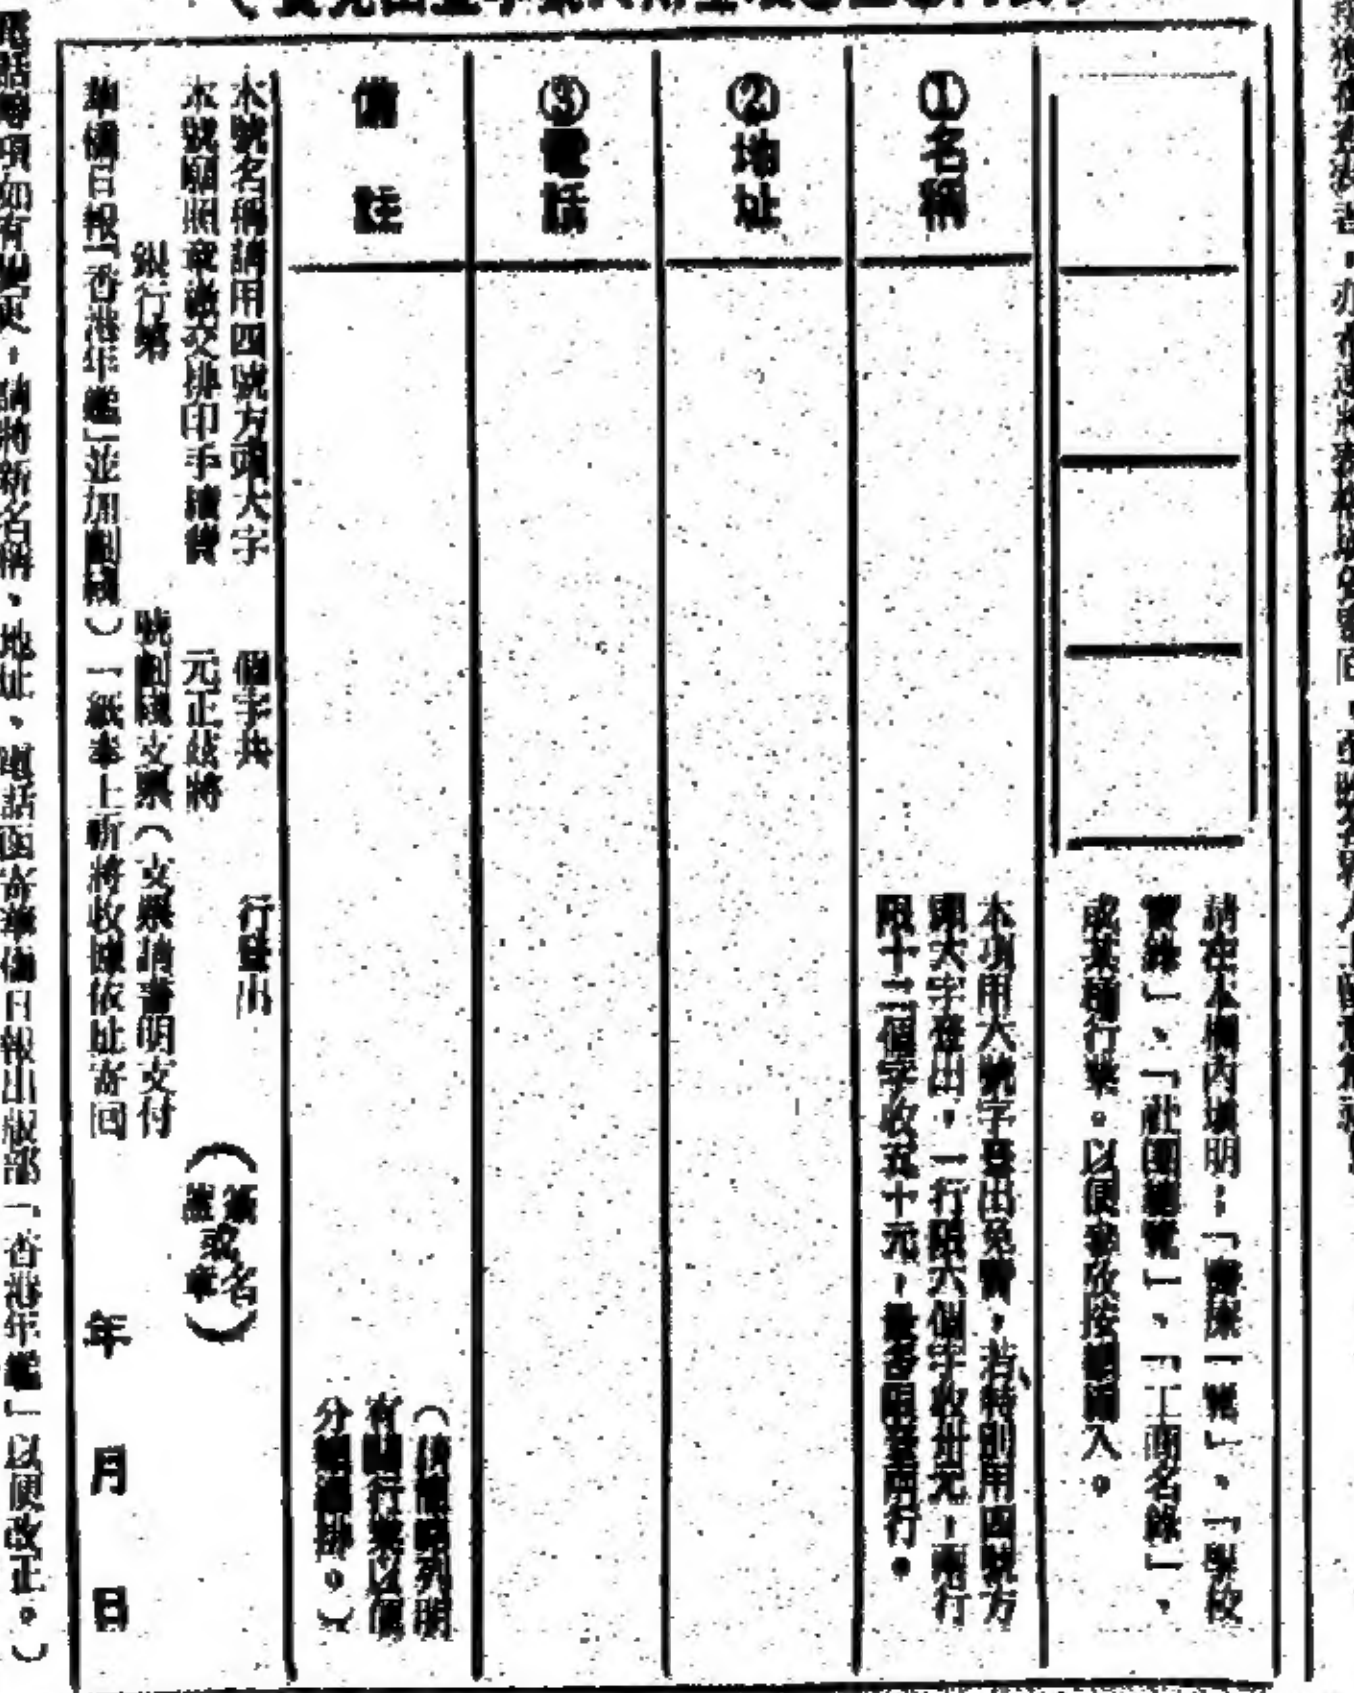 請在本欄內填明:「醫藥一覽」。「學校
實錄」、「社團總覽」、「工商名錄」、
或某種行業。以便參攷按類編入。
①名稱
本項用六號字登出免費,若特別用四號方
頭大字登出,一行限六個字收卅元,兩行
限十二個字收五十元,最多限登兩行。
②地址
③電話
備註
(請簡略列明
有關行業以便
分類編排。)
本號名稱請用四號方頭大字 個字共 行登出
本號願照章繳交排印手續費 元正茲將
(簽名
或
蓋章)
銀行第 號劃綫支票(支票請書明支付
華僑日報「香港年鑑」並加劃綫)一紙奉上祈將收據依址寄回
年 月 日
電話等項如有變更,請將新名稱、地址、電話函寄華僑日報出版部「香港年鑑」以便改正。)